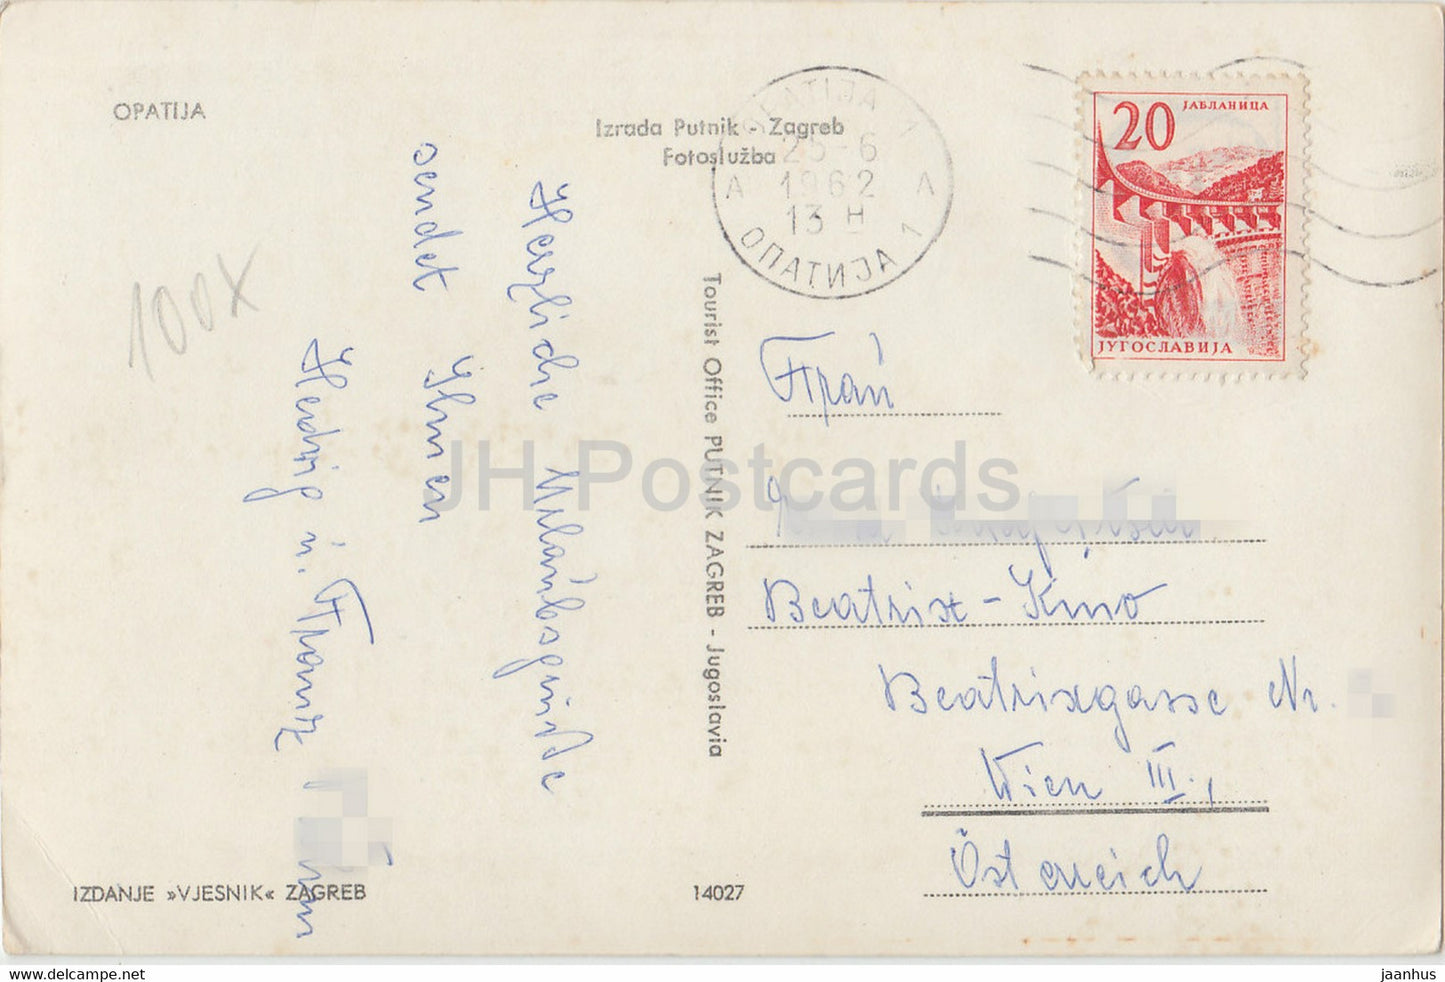 OPATIJA
Izrada Putnik - Zagreb
Fotoslužba
OPATIJA
25-6
1962
13 H
A A
ОПАТИЈА 1
20
ЈАБЛАНИЦА
ЈУГОСЛАВИЈА
100X
Herzliche Urlaubsgrüße
sendet Ihnen
Hedwig u. Franz
Tourist Office PUTNIK ZAGREB - Jugoslavia
Frau
Beatrix-Kino
Beatrixgasse Nr.
Wien III.,
Österreich
IZDANJE »VJESNIK« ZAGREB
14027
JH Postcards
www.hippostcard.com/store/jaanhus